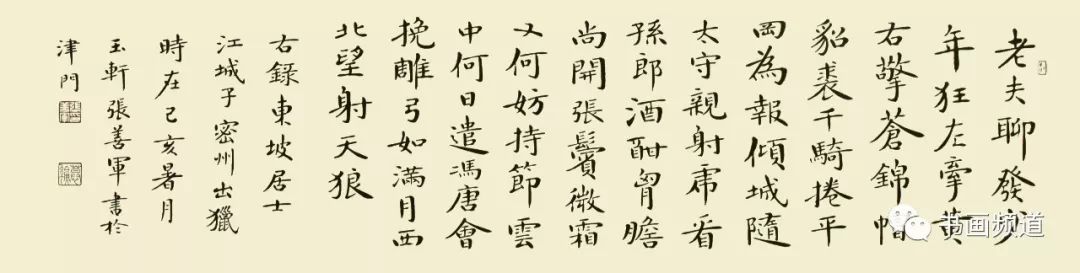 老夫聊發少
年狂左牽黃
右擎蒼錦帽
貂裘千騎捲平
岡為報傾城隨
太守親射虎看
孫郎酒酣胷膽
尚開張鬢微霜
又何妨持節雲
中何日遣馮唐會
挽雕弓如滿月西
北望射天狼
右錄東坡居士
江城子密州出獵
時在己亥暑月
玉軒張善軍書於
津門
书画频道